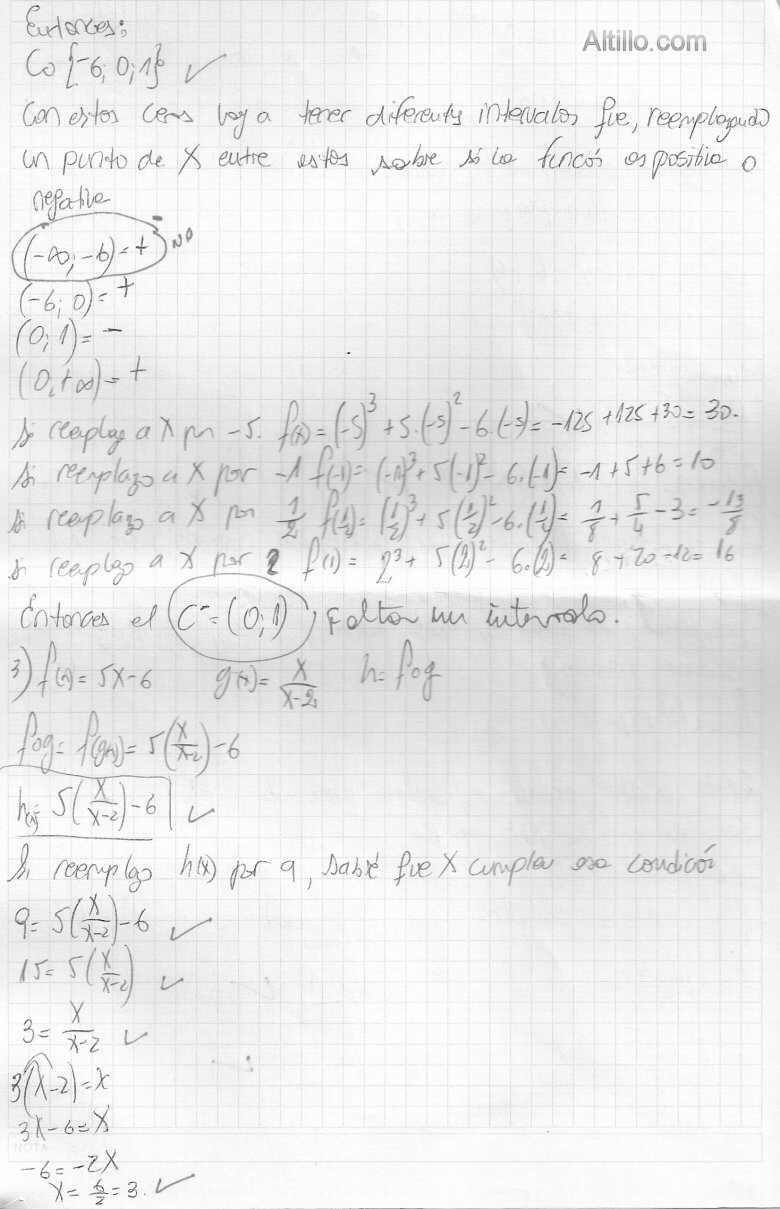 Entonces:
Altillo.com
Co {-6; 0; 1} ✓
Con estos ceros voy a tener diferentes intervalos que, reemplazando
un punto de X entre estos sabre si la función es positiva o
negativa
(-∞; -6) = + - NO
(-6; 0) = +
(0; 1) = -
(0, +∞) = +
Si reemplazo a X por -5. f(x) = (-5)³ + 5.(-5)² - 6.(-5) = -125 + 125 + 30 = 30.
Si reemplazo a X por -1 f(-1) = (-1)³ + 5(-1)² - 6.(-1) = -1 + 5 + 6 = 10
Si reemplazo a X por 1/2 f(1/2) = (1/2)³ + 5(1/2)² - 6.(1/2) = 1/8 + 5/4 - 3 = -13/8
Si reemplazo a X por 2 f(1) = 2³ + 5(2)² - 6.(2) = 8 + 20 - 12 = 16
Entonces el C⁻ = (0; 1) , Falta un intervalo.
3) f(x) = 5X - 6 g(x) = X/(X-2) h = fog
fog = f(g(x)) = 5(X/(X-2)) - 6
h(x) = 5(X/(X-2)) - 6 ✓
Si reemplazo h(x) por 9, sabré que X cumple esa condición
9 = 5(X/(X-2)) - 6 ✓
15 = 5(X/(X-2)) ✓
3 = X/(X-2) ✓
3(X-2) = X
3X - 6 = X
NOTA
-6 = -2X
X = 6/2 = 3. ✓